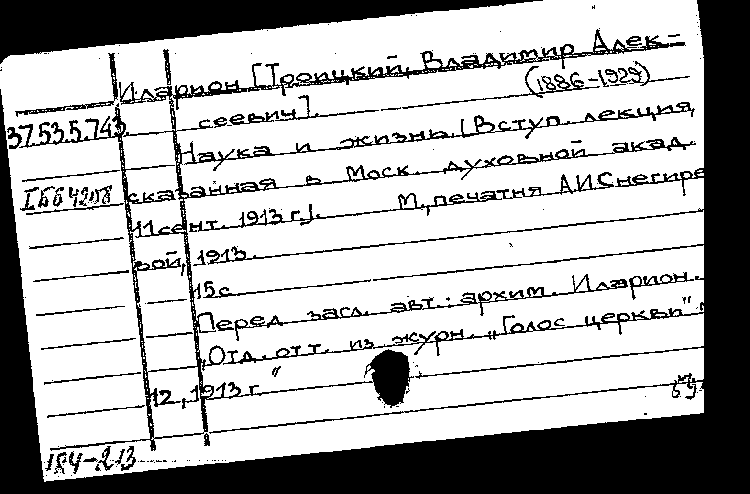 Иларион [Троицкий, Владимир Алек-
(1886-1929)
сеевич].
37.53.5.743
Наука и жизнь. [Вступ. лекция,
I ББ 4208
сказанная в Моск. духовной акад.
11 сент. 1913 г.]. М., печатня А.И.Снегире
вой, 1913.
15 с.
Перед загл. авт.: архим. Иларион.
"Отд. отт. из журн. "Голос церкви"
12, 1913 г."
184-213